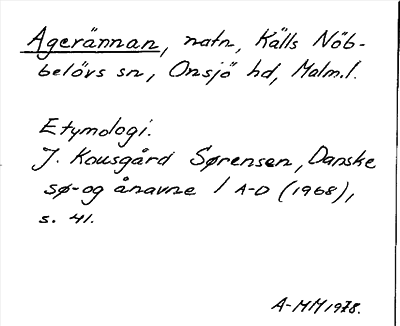 Agerännan, natn, Källs Nöb-
belövs sn, Onsjö hd, Malm.l.
Etymologi.
J. Kousgård Sørensen, Danske
sø- og ånavne I A-D (1968),
s. 41.
A-MM 1978.